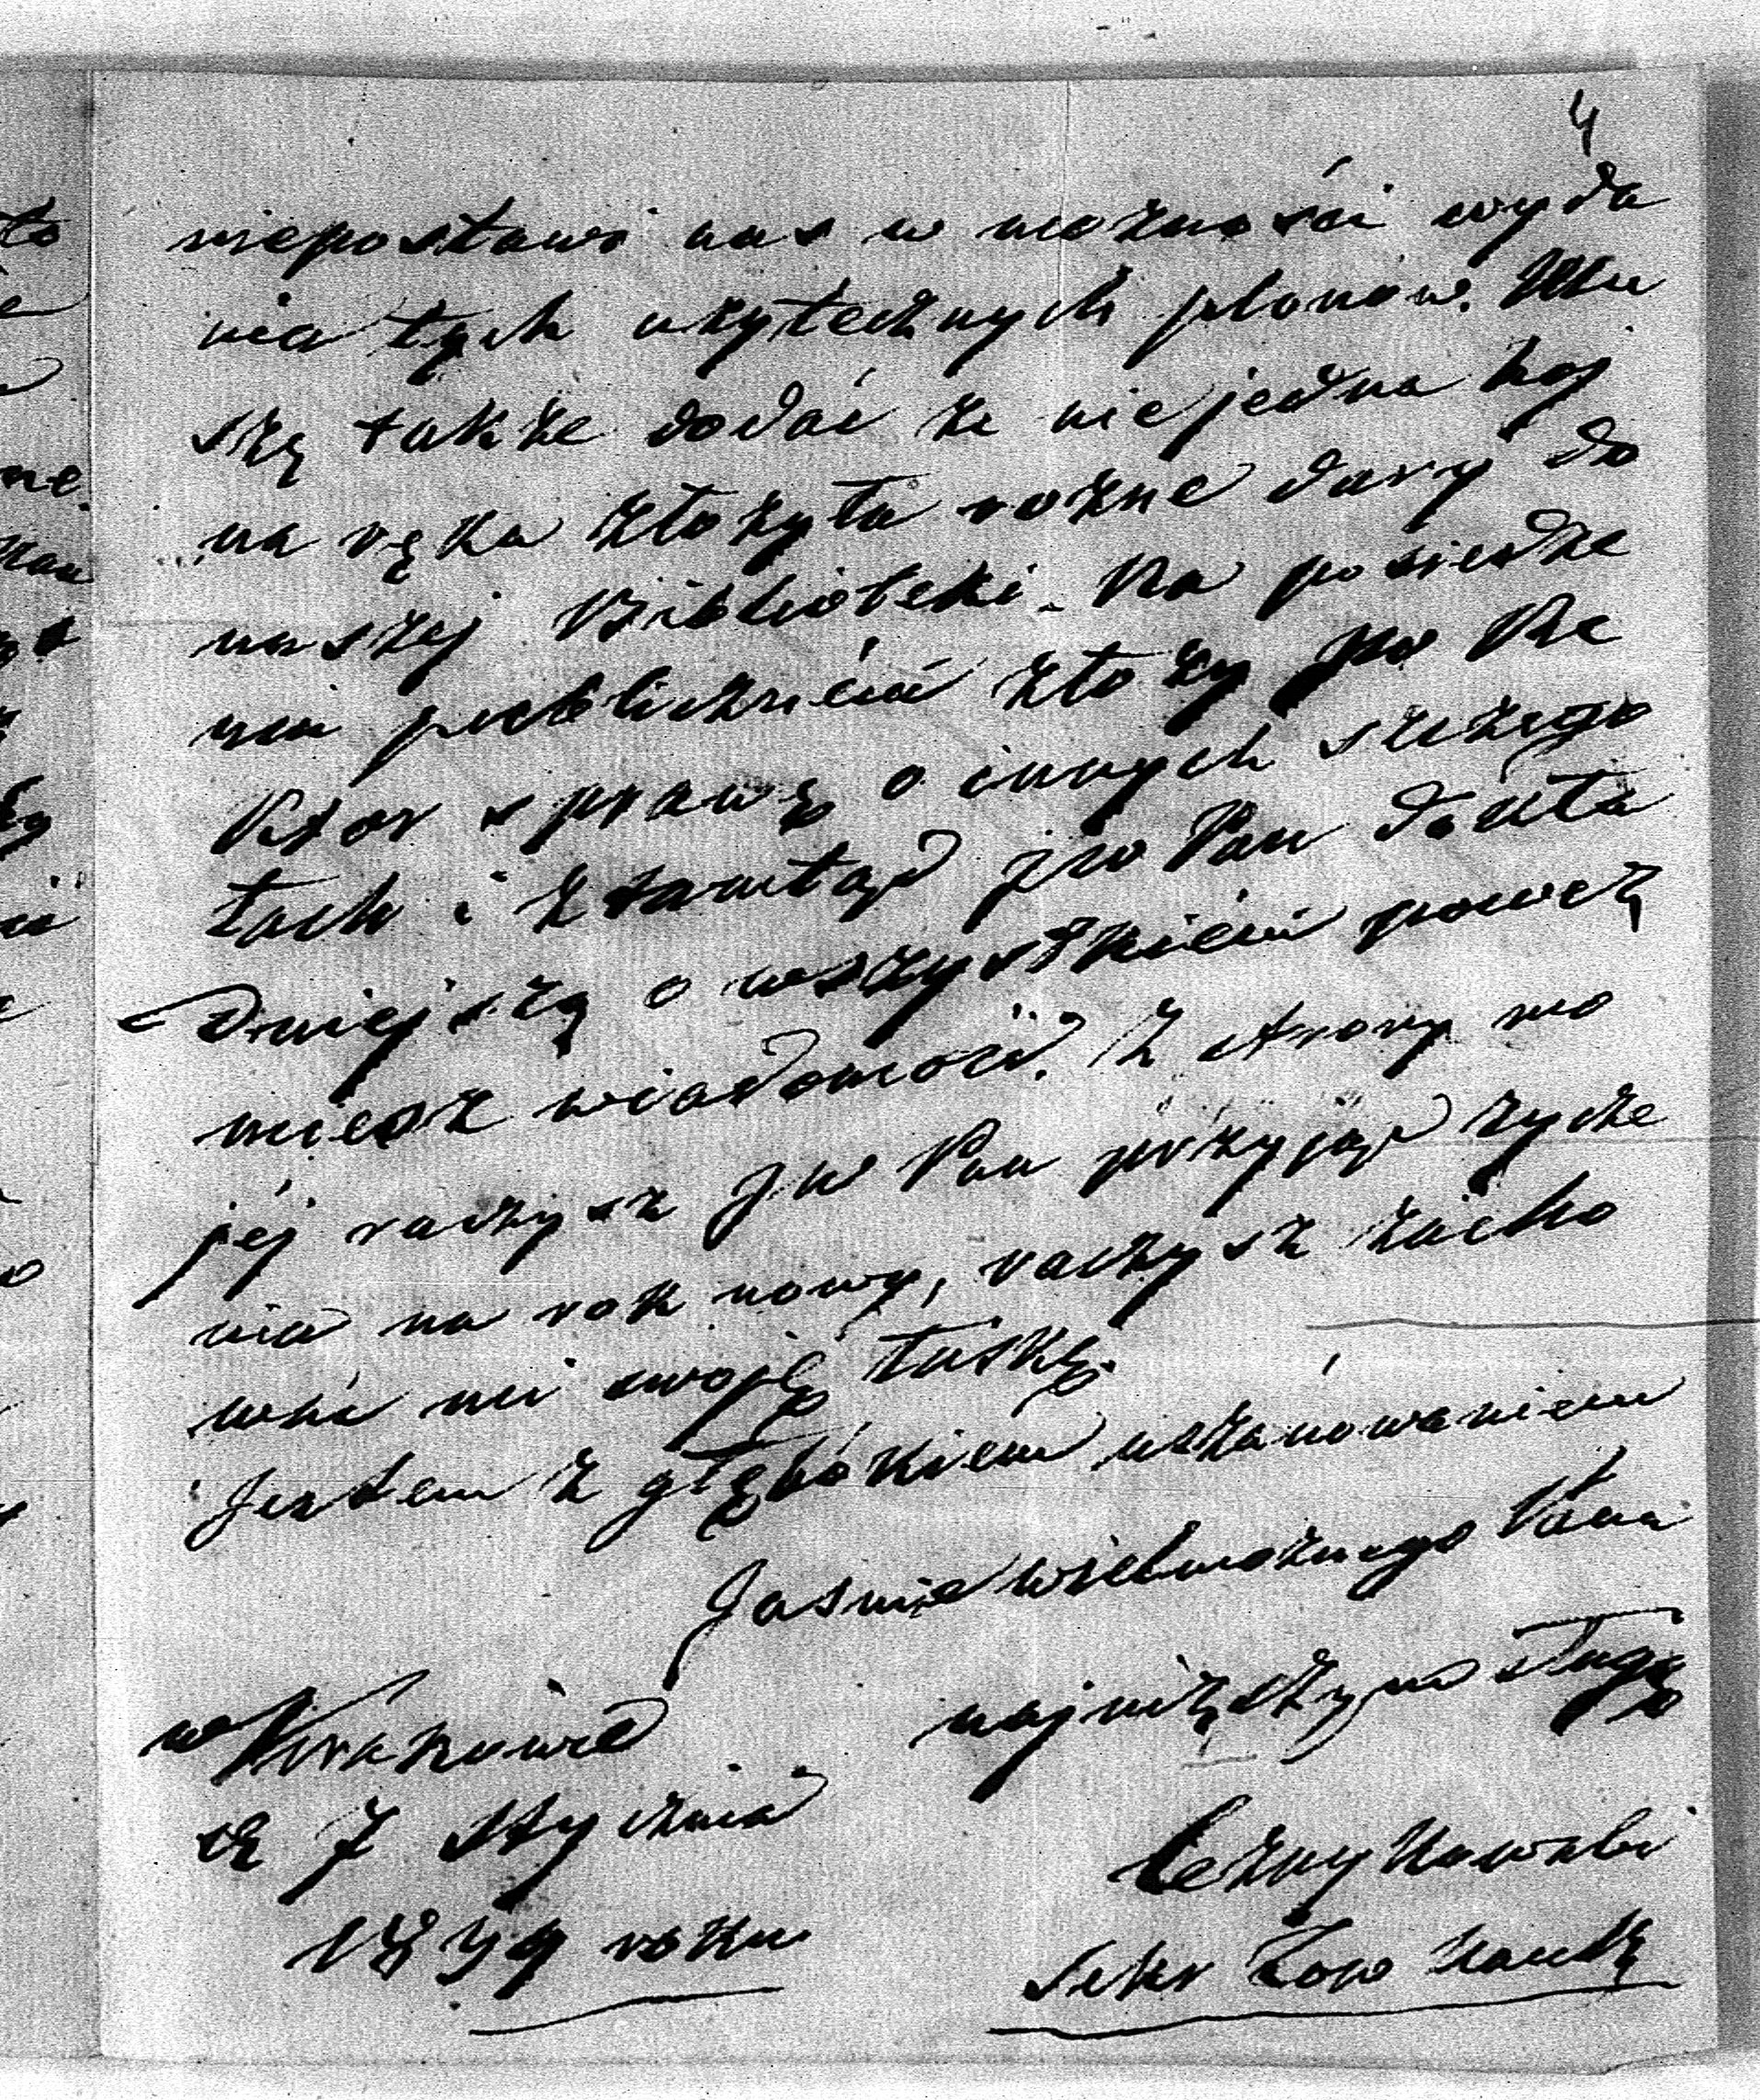 4
niepostawi nas w możności wyda
nia tych użytecznych planów. Mu
szę także dodać że niejedna hoj
na ręka złożyła rożne dary do
naszej Biblioteki. Na posiedze
niu publicznem złoży po Re
ktor sprawę o innych szczego
łach i ztamtąd JW Pan dokła
dniejszą o wszystkiem poweź
miesz wiadomość. Z strony mo
jéj raczysz JW Pan przyjąć życze
nia na rok nowy, raczysz zacho
wać mi swoję łaskę.
Jestem z głębokiem uszanowaniem
Jaśnie wielmożnego Pana
najniższym sługą
w Krakowie
d 7 Stycznia
roku
Sekr Tow Nauk